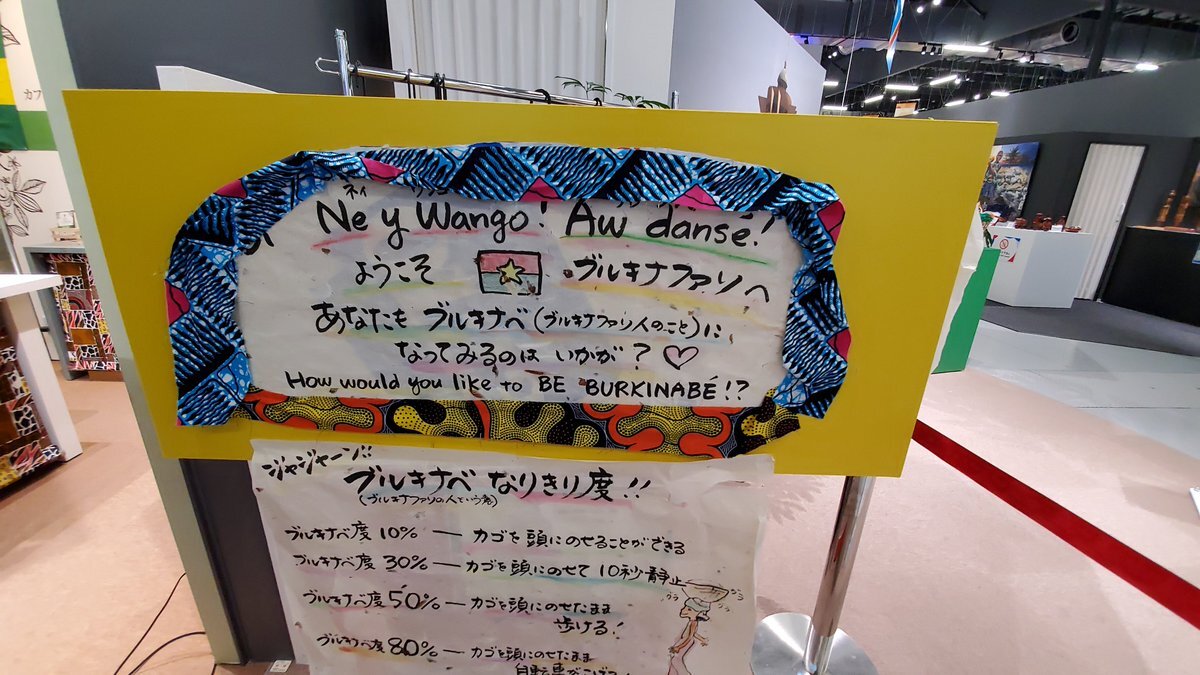 カフ
ネィ
Ne y Wango! Aw dansé!
ようこそ ブルキナファソへ
あなたも ブルキナベ(ブルキナファソ人のこと)に
なってみるのは いかが?♡
How would you like to BE BURKINABÉ!?
ジャジャーン!!
ブルキナベ なりきり度!!
(ブルキナファソの人という意)
ブルキナベ度 10% — カゴを頭にのせることができる
ブルキナベ度 30% — カゴを頭にのせて 10秒静止
ブルキナベ度 50% — カゴを頭にのせたまま
歩ける!
グラ
グラ
ブルキナベ度 80% — カゴを頭にのせたまま
自転車がこげる